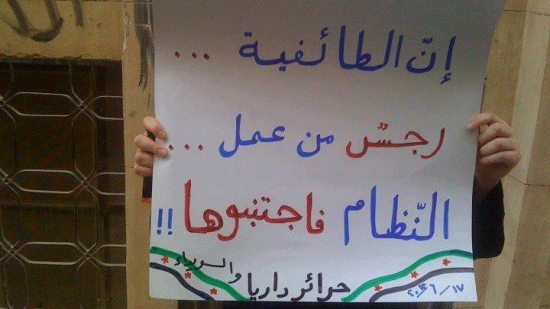 إنّ الطائفية ...
رجسٌ من عمل ...
النّظام فاجتنبوها !!
حرائر داريا والسويداء